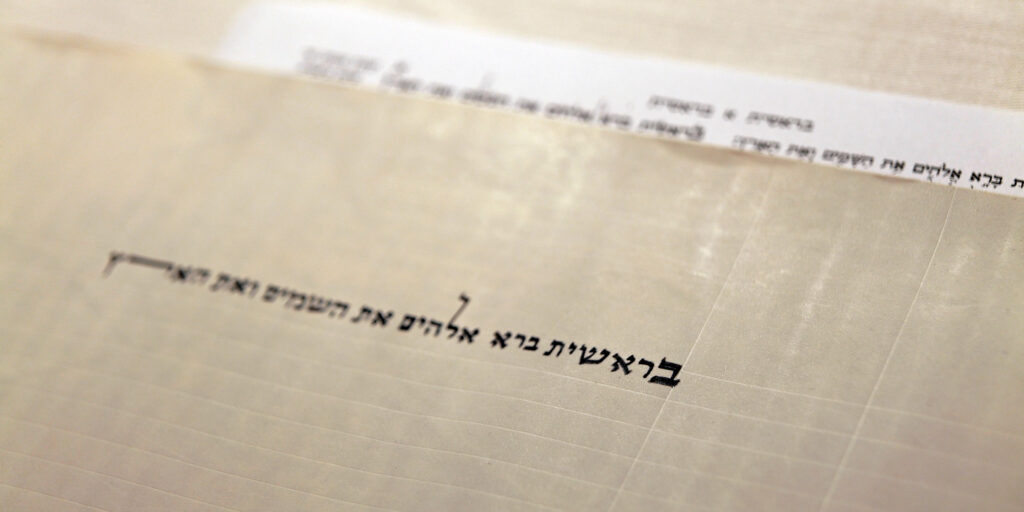 בראשית א בראשית
בראשית ברא אלהים את השמים ואת הארץ
בָּרָא אֱלֹהִים אֵת הַשָּׁמַיִם וְאֵת הָאָרֶץ
בראשית ברא אלהים את השמים ואת הארץ